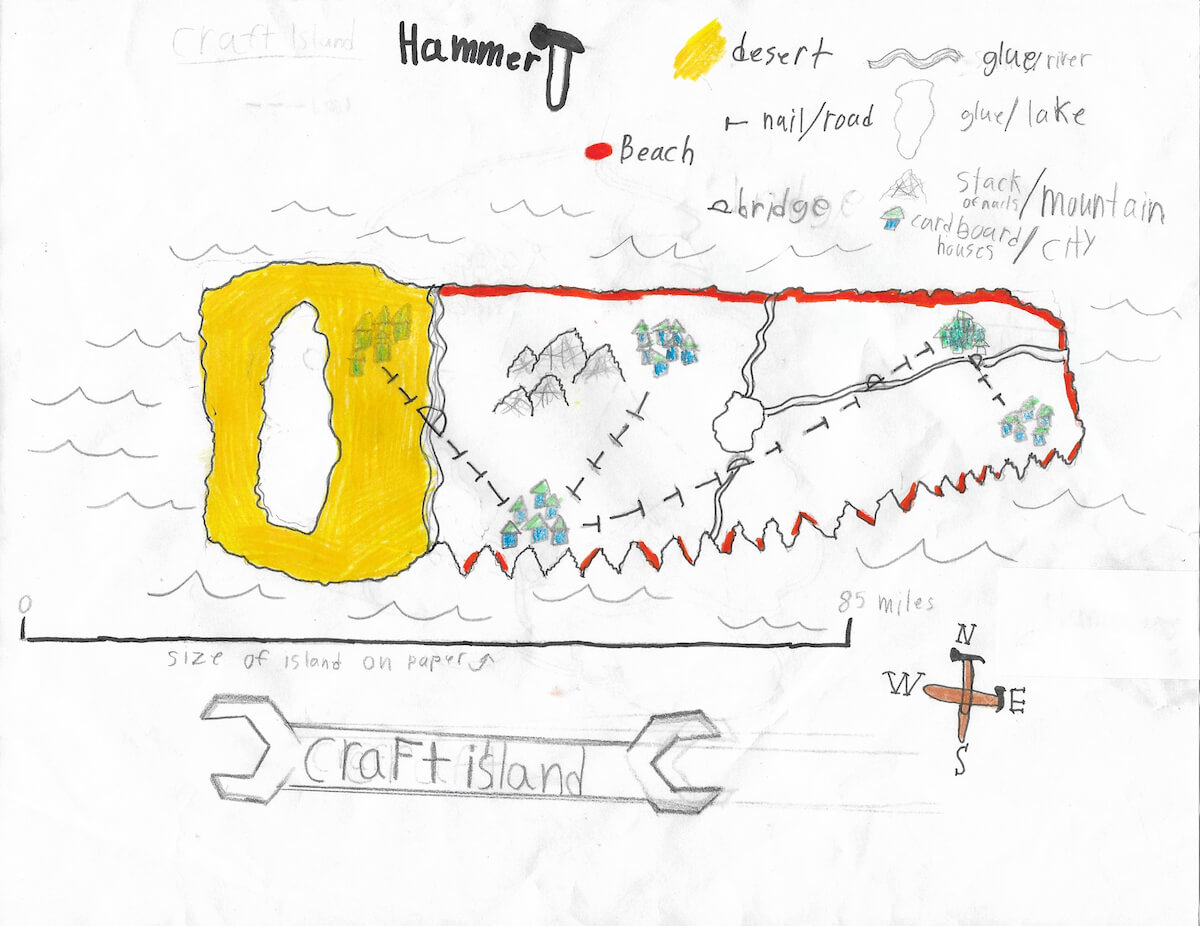 craft Island
Hammer
desert
glue/river
nail/road
glue/lake
Beach
bridge
stack
of nails/mountain
cardboard
houses/city
0
85 miles
size of island on paper
N
W
E
S
craft island